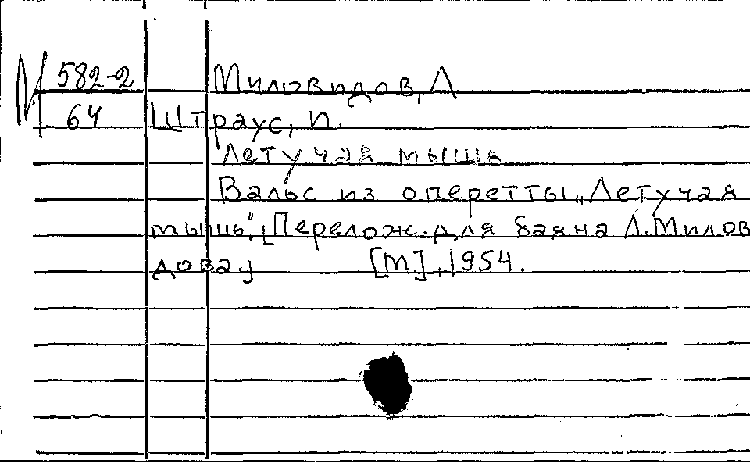 М 582-2 Миловидов, Л
64 Штраус, И.
Летучая мышь
Вальс из оперетты „Летучая
мышь". [Перелож. для баяна Л. Милов
дова] [М], 1954.